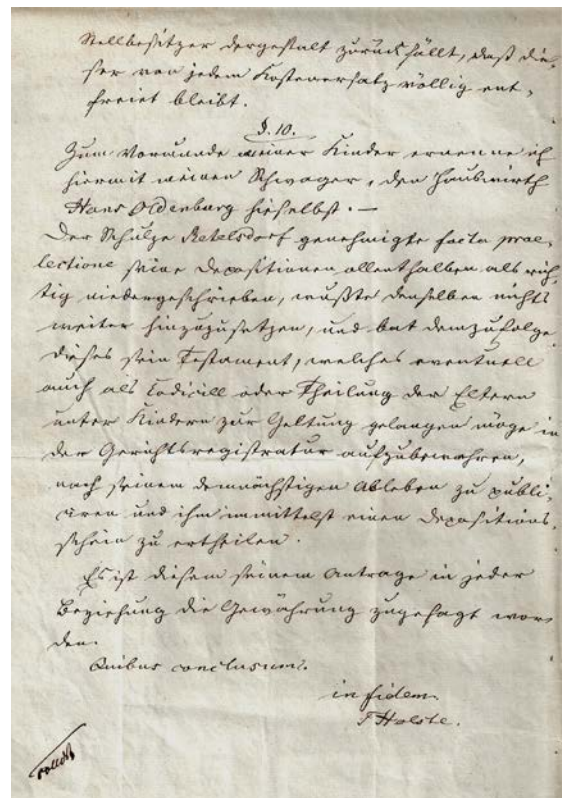 Stellbesitzer dergestalt zurückfällt, daß die-
ser von jedem Kostenersatz völlig ent-
freiet bleibt.
§. 10.
Zum Vormunde meiner Kinder ernenne ich
hiermit meinen Schwager, den Hauswirth
Hans Oldenburg hieselbst. —
Der Schulze Retelsdorf genehmigte facta prae-
lectione seine Depositionen allenthalben als rich-
tig niedergeschrieben, wußte denselben nichts
weiter hinzuzusetzen, und bat demzufolge
dieses sein Testament, welches eventuell
auch als Codicill oder Theilung der Eltern
unter Kindern zur Geltung gelangen möge in
der Gerichtsregistratur aufzubewahren,
nach seinem demnächstigen Ableben zu publi-
ciren und ihm immittelst einen Depositions-
schein zu ertheilen.
Es ist diesem seinem Antrage in jeder
Beziehung die Gewährung zugesagt wor-
den.
Quibus conclusum.
in fidem.
Holste.